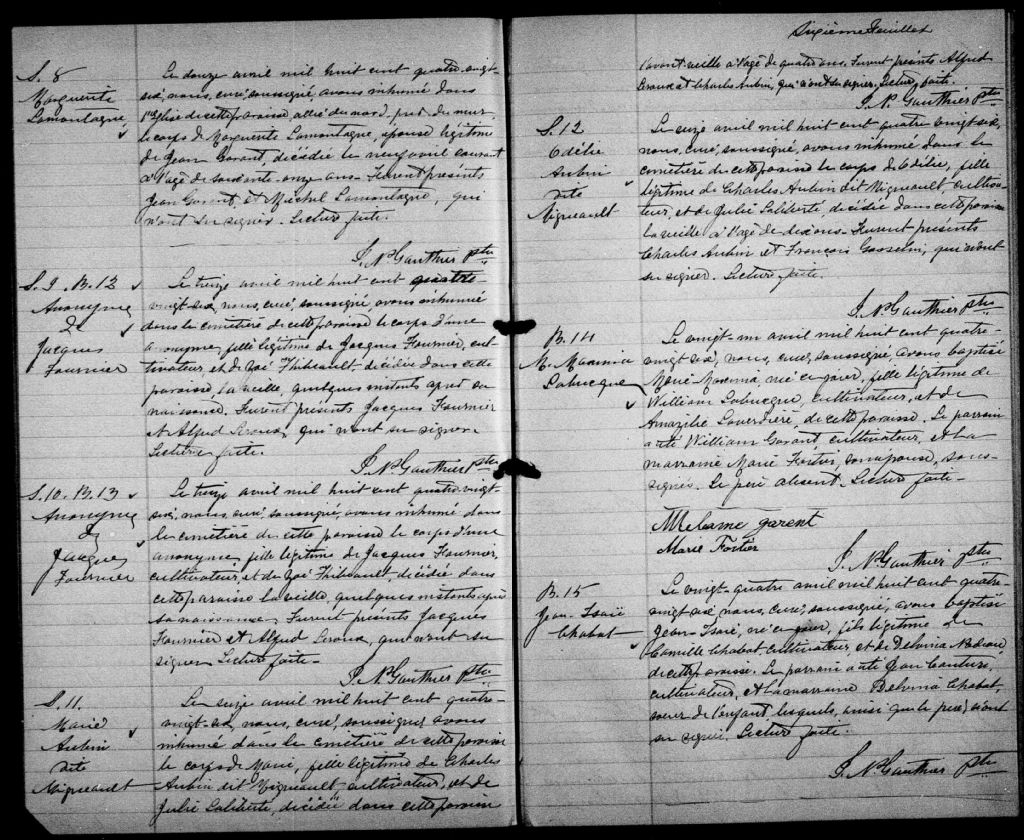 S. 8
Marguerite
Lamontagne
Le douze avril mil huit cent quatre-vingt-
six, nous, curé, soussigné, avons inhumé dans
l'Eglise de cette paroisse, allée du nord, près du mur
le corps de Marguerite Lamontagne, épouse légitime
de Jean Gorant, décédée le neuf avril courant
à l'âge de soixante-onze ans. Furent présents
Jean Gorant et Michel Lamontagne, qui
n'ont su signer. Lecture faite.
J. N. Gauthier Ptre
S. 9. B. 12
Anonyme
de
Jacques
Fournier
Le treize avril mil huit cent quatre-
vingt-six, nous, curé, soussigné, avons inhumé
dans le cimetière de cette paroisse le corps d'une
anonyme, fille légitime de Jacques Fournier, cul-
tivateur et de Zoé Thibeault, décédée dans cette
paroisse la veille, quelques instants après sa
naissance. Furent présents Jacques Fournier
et Alfred Giroux, qui n'ont su signer.
Lecture faite.
J. N. Gauthier Ptre
S. 10. B. 13
Anonyme
de
Jacques
Fournier
Le treize avril mil huit cent quatre-vingt-
six, nous, curé, soussigné, avons inhumé dans
le cimetière de cette paroisse le corps d'une
anonyme, fille légitime de Jacques Fournier,
cultivateur, et de Zoé Thibeault, décédée dans
cette paroisse la veille, quelques instants après
sa naissance. Furent présents Jacques
Fournier et Alfred Giroux, qui n'ont su
signer. Lecture faite.
J. N. Gauthier Ptre
S. 11.
Marie
Aubin
dite
Migneault
Le seize avril mil huit cent quatre-
vingt-six, nous, curé, soussigné, avons
inhumé dans le cimetière de cette paroisse
le corps de Marie, fille légitime de Charles
Aubin dit Migneault, cultivateur, et de
Julie Laliberté, décédée dans cette paroisse
Sixième Feuillet
l'avant-veille à l'âge de quatre ans. Furent présents Alfred
Giroux et Charles Aubin, qui n'ont su signer. Lecture faite.
J. N. Gauthier Ptre
S. 12
Odélie
Aubin
dite
Migneault
Le seize avril mil huit cent quatre vingt-six,
nous, curé, soussigné, avons inhumé dans le
cimetière de cette paroisse le corps de Odélie, fille
légitime de Charles Aubin dit Migneault, cultiva-
teur, et de Julie Laliberté, décédée dans cette paroisse
la veille à l'âge de dix ans. Furent présents
Charles Aubin et François Gosselin, qui n'ont
su signer. Lecture faite.
J. N. Gauthier Ptre
B. 14
M. Maximia
Labrecque
Le vingt-un avril mil huit cent quatre-
vingt six, nous, curé, soussigné, avons baptisé
Marie Maximia, née ce jour, fille légitime de
William Labrecque, cultivateur, et de
Amazélie Laverdière, de cette paroisse. Le parrain
a été William Gorant, cultivateur, et la
marraine Marie Fortier, son épouse, sous-
signés. Le père absent. Lecture faite.
garent
Marie Fortier
J. N. Gauthier Ptre
B. 15
Jean-Isaïe
Chabot
Le vingt-quatre avril mil huit cent quatre-
vingt-six, nous, curé, soussigné, avons baptisé
Jean-Isaïe, né ce jour, fils légitime de
Camille Chabot, cultivateur, et de Delvina Nadeau
de cette paroisse. Le parrain a été Jean Couture,
cultivateur, et la marraine Delvina Chabot,
soeur de l'enfant, lesquels, ainsi que le père, n'ont
su signer. Lecture faite.
J. N. Gauthier Ptre